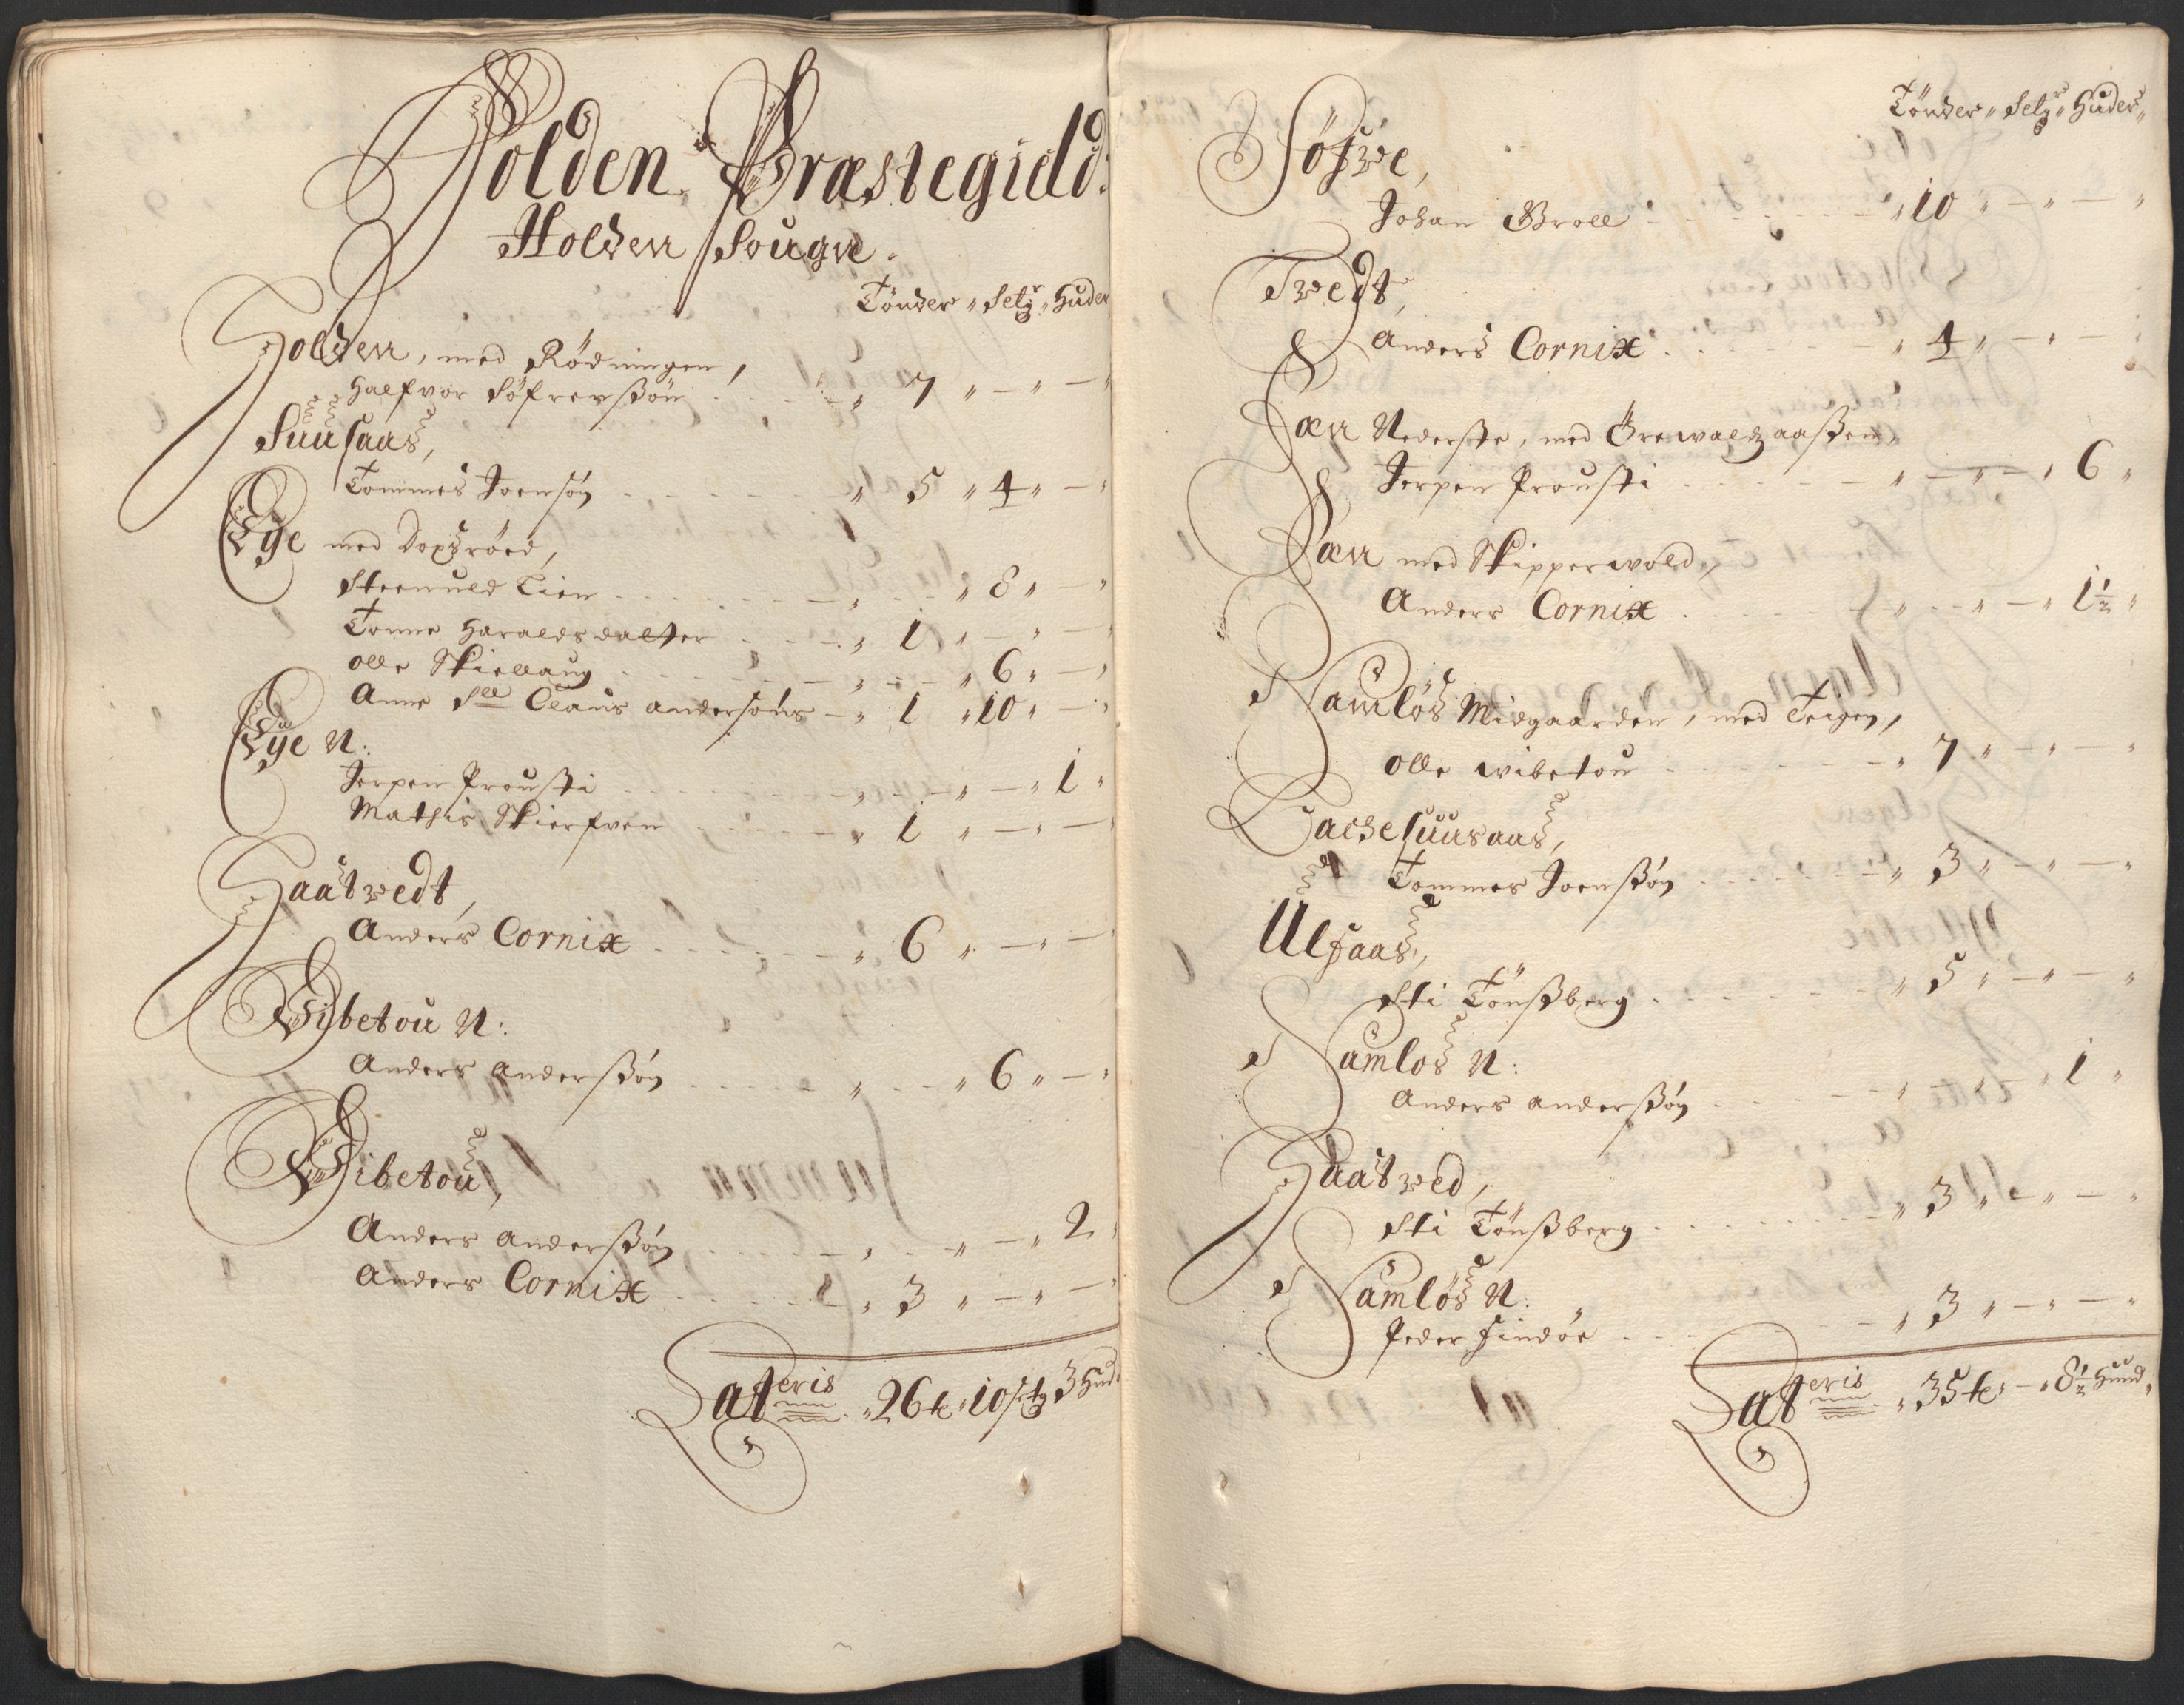 Holden Præstegield.
Holden Sougn.
Tønder „ Setg̃r „ Huder
Holden, med Rødningen,
Halfvor Söfrenßön . „ 7 „ – „ –
Suusaas,
Tommes Joensøn . . . . „ 5 „ 4 „ –
Eye med Dopsröed,
Steenuld Lien . . . . „ – „ 8 „
Tonne Haraldsdatter . . „ 1 „ – „ –
Olle Skiellaug . . . . „ – „ 6 „ –
Anne Sl: Claus andersøns – „ 1 „ 10 „ –
Eye N:
Jerpen Prousti . . . . „ – „ – „ 1 „
Mathis Skierfven . . . . „ 1 „ – „ –
Haatvedt,
Anders Cornix . . . . „ 6 „ – „ –
Wibetou N:
Anders Anderßøn . . . . „ – „ 6 „ –
Wibetou,
Anders Anderßøn . . . . „ – „ – „ 2
Anders Cornix . . . . „ 3 „ – „ –
Lateris „ 26 te „ 10 setg 3 Hud:
Tönder „ Setg̃r „ Huder „
Söfve,
Johan Broll . . . . „ 10 „ – „ – „
Tvedt,
Anders Cornix . . . . „ 4 „ – „ –
Fæn Nederste, med Örewaldzaaßen,
Jerpen Prousti . . . . „ – „ – „ 6 „
Fæn med Skipperwold,
Anders Cornix . . . . „ – „ – „ 1½ „
Namlös Midgaarden, med Teigen,
Olle wibetou . . . . „ 7 „ – „ – „
Bachesuusaas,
Tommes Joenßøn . . . . „ 3 „ – „ – „
Ulsaas,
Sti Tönßberg . . . . „ 5 „ – „ – „
Namlos N:
Anders Anderßøn . . . . „ – „ – „ 1 „
Haatved,
Sti Tönßberg . . . . „ 3 „ – „ – „
Namlös N:
Peder Findöe . . . . „ 3 „ – „ – „
Lateris „ 35 te „ – „ 8½ Huud „